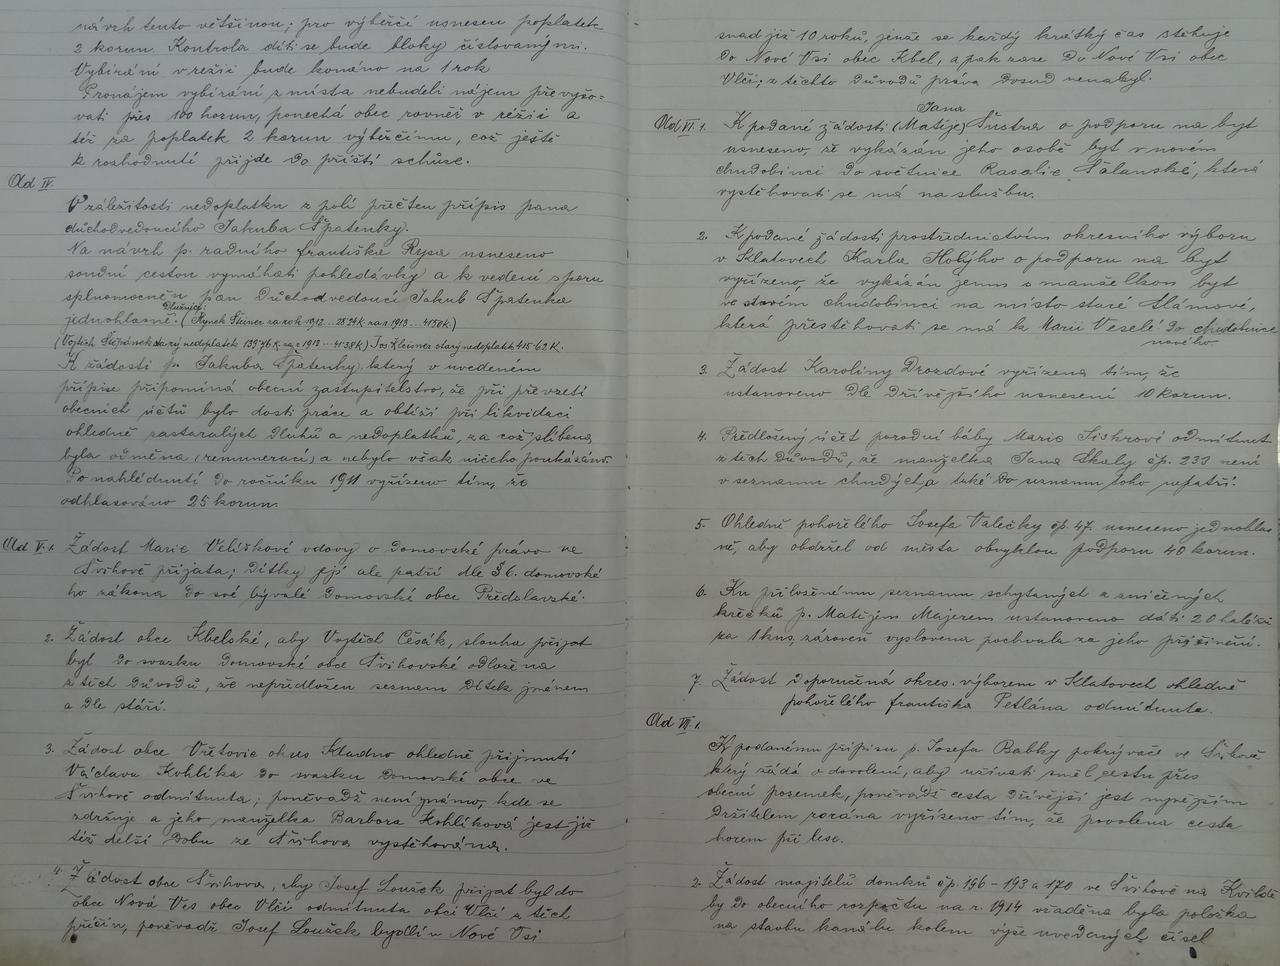 návrh tento většinou; pro výběrčí usnesen poplatek
2 korun. Kontrola díti se bude bloky číslovanými.
Vybírání v režii bude konáno na 1 rok
Pronájem vybírání z místa nebudeli nájem převyšo=
vati přes 100 korun, ponechá obec rovněž v režii a
též za poplatek 2 korun výběrčímu, což ještě
k rozhodnutí přijde do příští schůze.
Ad IV.
V záležitosti nedoplatku z polí přečten přípis pana
důchodvedoucího Jakuba Špatenky.
Na návrh p. radního Františka Rysa usneseno
soudní cestou vymáhati pohledávky a k vedení sporu
splnomocněn pan Důchodvedoucí Jakub Špatenka
Dlužníci:
jednohlasně. (Hynek Steiner za rok 1912 ... 28·24K za r. 1913 ... 41·50K.)
(Vojtěch Štěpánek starý nedoplatek 139·76K za r 1913 ... 41·38K.) Jos Kleiner starý nedoplatek 415·62K.
K žádosti p. Jakuba Špatenky, který v uvedeném
přípise připomíná obecní zastupitelstvo, že při převzetí
obecních účtů bylo dosti práce a obtíží při likvidaci
ohledně zastaralých dluhů a nedoplatků, za což slíbena
byla odměna (remuneraci) a nebylo však ničeho poukázáno.
Po nahlédnutí do ročníku 1911 vyřízeno tím, že
odhlasováno 25 korun.
Ad V. 1. Žádost Marie Velíškové vdovy o domovské právo ve
Švihově přijata; dítky její ale patří dle § 6. domovské
ho zákona do své bývalé domovské obce Předslavské.
2. Žádost obce Kbelské, aby Vojtěch Cešák, slouha přijat
byl do svazku domovské obce Švihovské odložena
z těch důvodů, že nepředložen seznam dítek jménem
a dle stáří.
3. Žádost obce Vřetovic okres Kladno ohledně přijmutí
Václava Kohlíka do svazku domovské obce ve
Švihově odmítnuta; poněvadž není známo, kde se
zdržuje a jeho manželka Barbora Kohlíková jest již
též delší dobu ze Švihova vystěhována.
4. Žádost obce Švihova, aby Josef Loužek přijat byl do
obce Nová Ves obec Vlčí odmítnuta obcí Vlčí z těch
příčin, poněvadž Josef Loužek bydlí v Nové Vsi
snad již 10 roků, jenže se každý krátký čas stěhuje
do Nové Vsi obec Kbel, a pak zase do Nové Vsi obec
Vlčí; z těchto důvodů práva dosud nenabyl.
Jana
Ad VI. 1. K podané žádosti (Matěje) Šustra o podporu na byt
usneseno, že vykázán jeho osobě byt v novém
chudobinci do světnice Rosalie Šalanské, která
vystěhovati se má na službu.
2. K podané žádosti prostřednictvím okresního výboru
v Klatovech Karla Holýho o podporu na byt
vyřízeno, že vykázán jemu s manželkou byt
ve starém chudobinci na místo staré Slámové,
která přestěhovati se má k Marii Veselé do chudobince
nového.
3. Žádost Karoliny Drozdové vyřízena tím, že
ustanoveno dle dřívějšího usnesení 10 korun.
4. Předložený účet porodní báby Marie Siskrové odmítnut
z těch důvodů, že manželka Jana Skaly čp. 233 není
v seznamu chudých, a také do seznamu toho nepatří.
5. Ohledně pohořelého Josefa Valečky čp. 47. usneseno jednohlas
ně, aby obdržel od města obvyklou podporu 40 korun.
6. Ku přiloženému seznamu schytaných a zničených
křečků p. Matějem Majerem ustanoveno dáti 20 haléřů
za 1 kus, zároveň vyslovena pochvala za jeho přičinění.
7. Žádost doporučená okres. výborem v Klatovech ohledně
pohořelého Františka Petlána odmítnuta.
Ad VII. 1.
K podanému přípisu p. Josefa Babky pokrývače ve Švihově
který žádá o dovolení, aby užívati směl cestu přes
obecní pozemek, poněvadž cesta dřívější jest nynějším
držitelem zorána vyřízeno tím, že povolena cesta
horem při lese.
2. Žádost majitelů domků čp. 196 - 193 a 170 ve Švihově na Kvildě
by do obecního rozpočtu na r. 1914 vřaděna byla položka
na stavbu kanálu kolem výše uvedených čísel